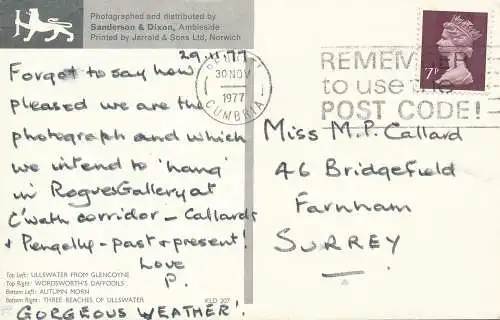 Photographed and distributed by
Sanderson & Dixon, Ambleside
Printed by Jarrold & Sons Ltd, Norwich
29.11.77
Forgot to say how
pleased we are the
photograph and which
we intend to 'hang'
in Rogues Gallery at
C'wath corridor - Callards
+ Pengelly - past + present!
Love
P.
Top Left: ULLSWATER FROM GLENCOYNE
Top Right: WORDSWORTH'S DAFFODILS
Bottom Left: AUTUMN MORN
Bottom Right: THREE REACHES OF ULLSWATER
KLD 207
GORGEOUS WEATHER!
30 NOV
1977
CUMBRIA
REMEMBER
to use the
POST CODE!
7P
Miss M.P. Callard
46 Bridgefield
Farnham
SURREY